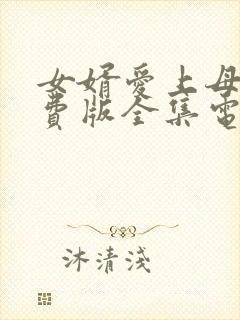 女婿愛上母
費版全集電
沐清淺